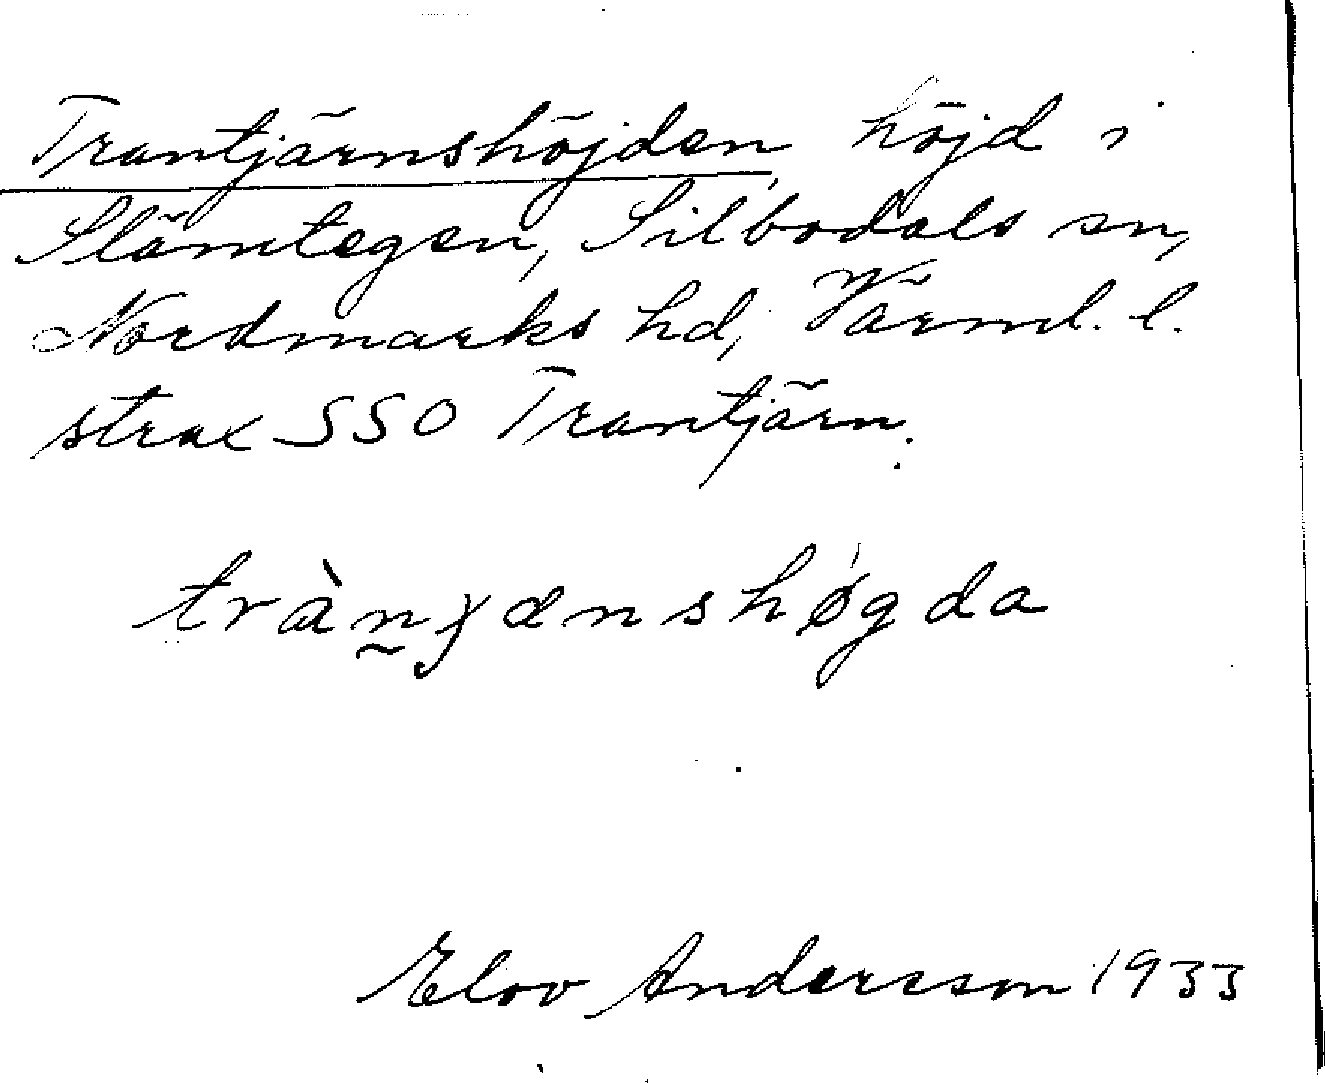 Trantjärnshöjden, höjd i
Slämtegen, Silbodals sn,
Nordmarks hd, Värml. l.
strax SSO Trantjärn.
tràn̰jænshǿgda
Elov Andersson 1933